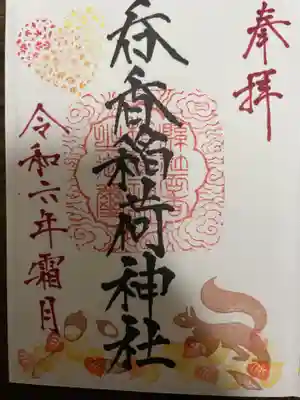 奉拝
呑香稲荷神社
令和六年霜月